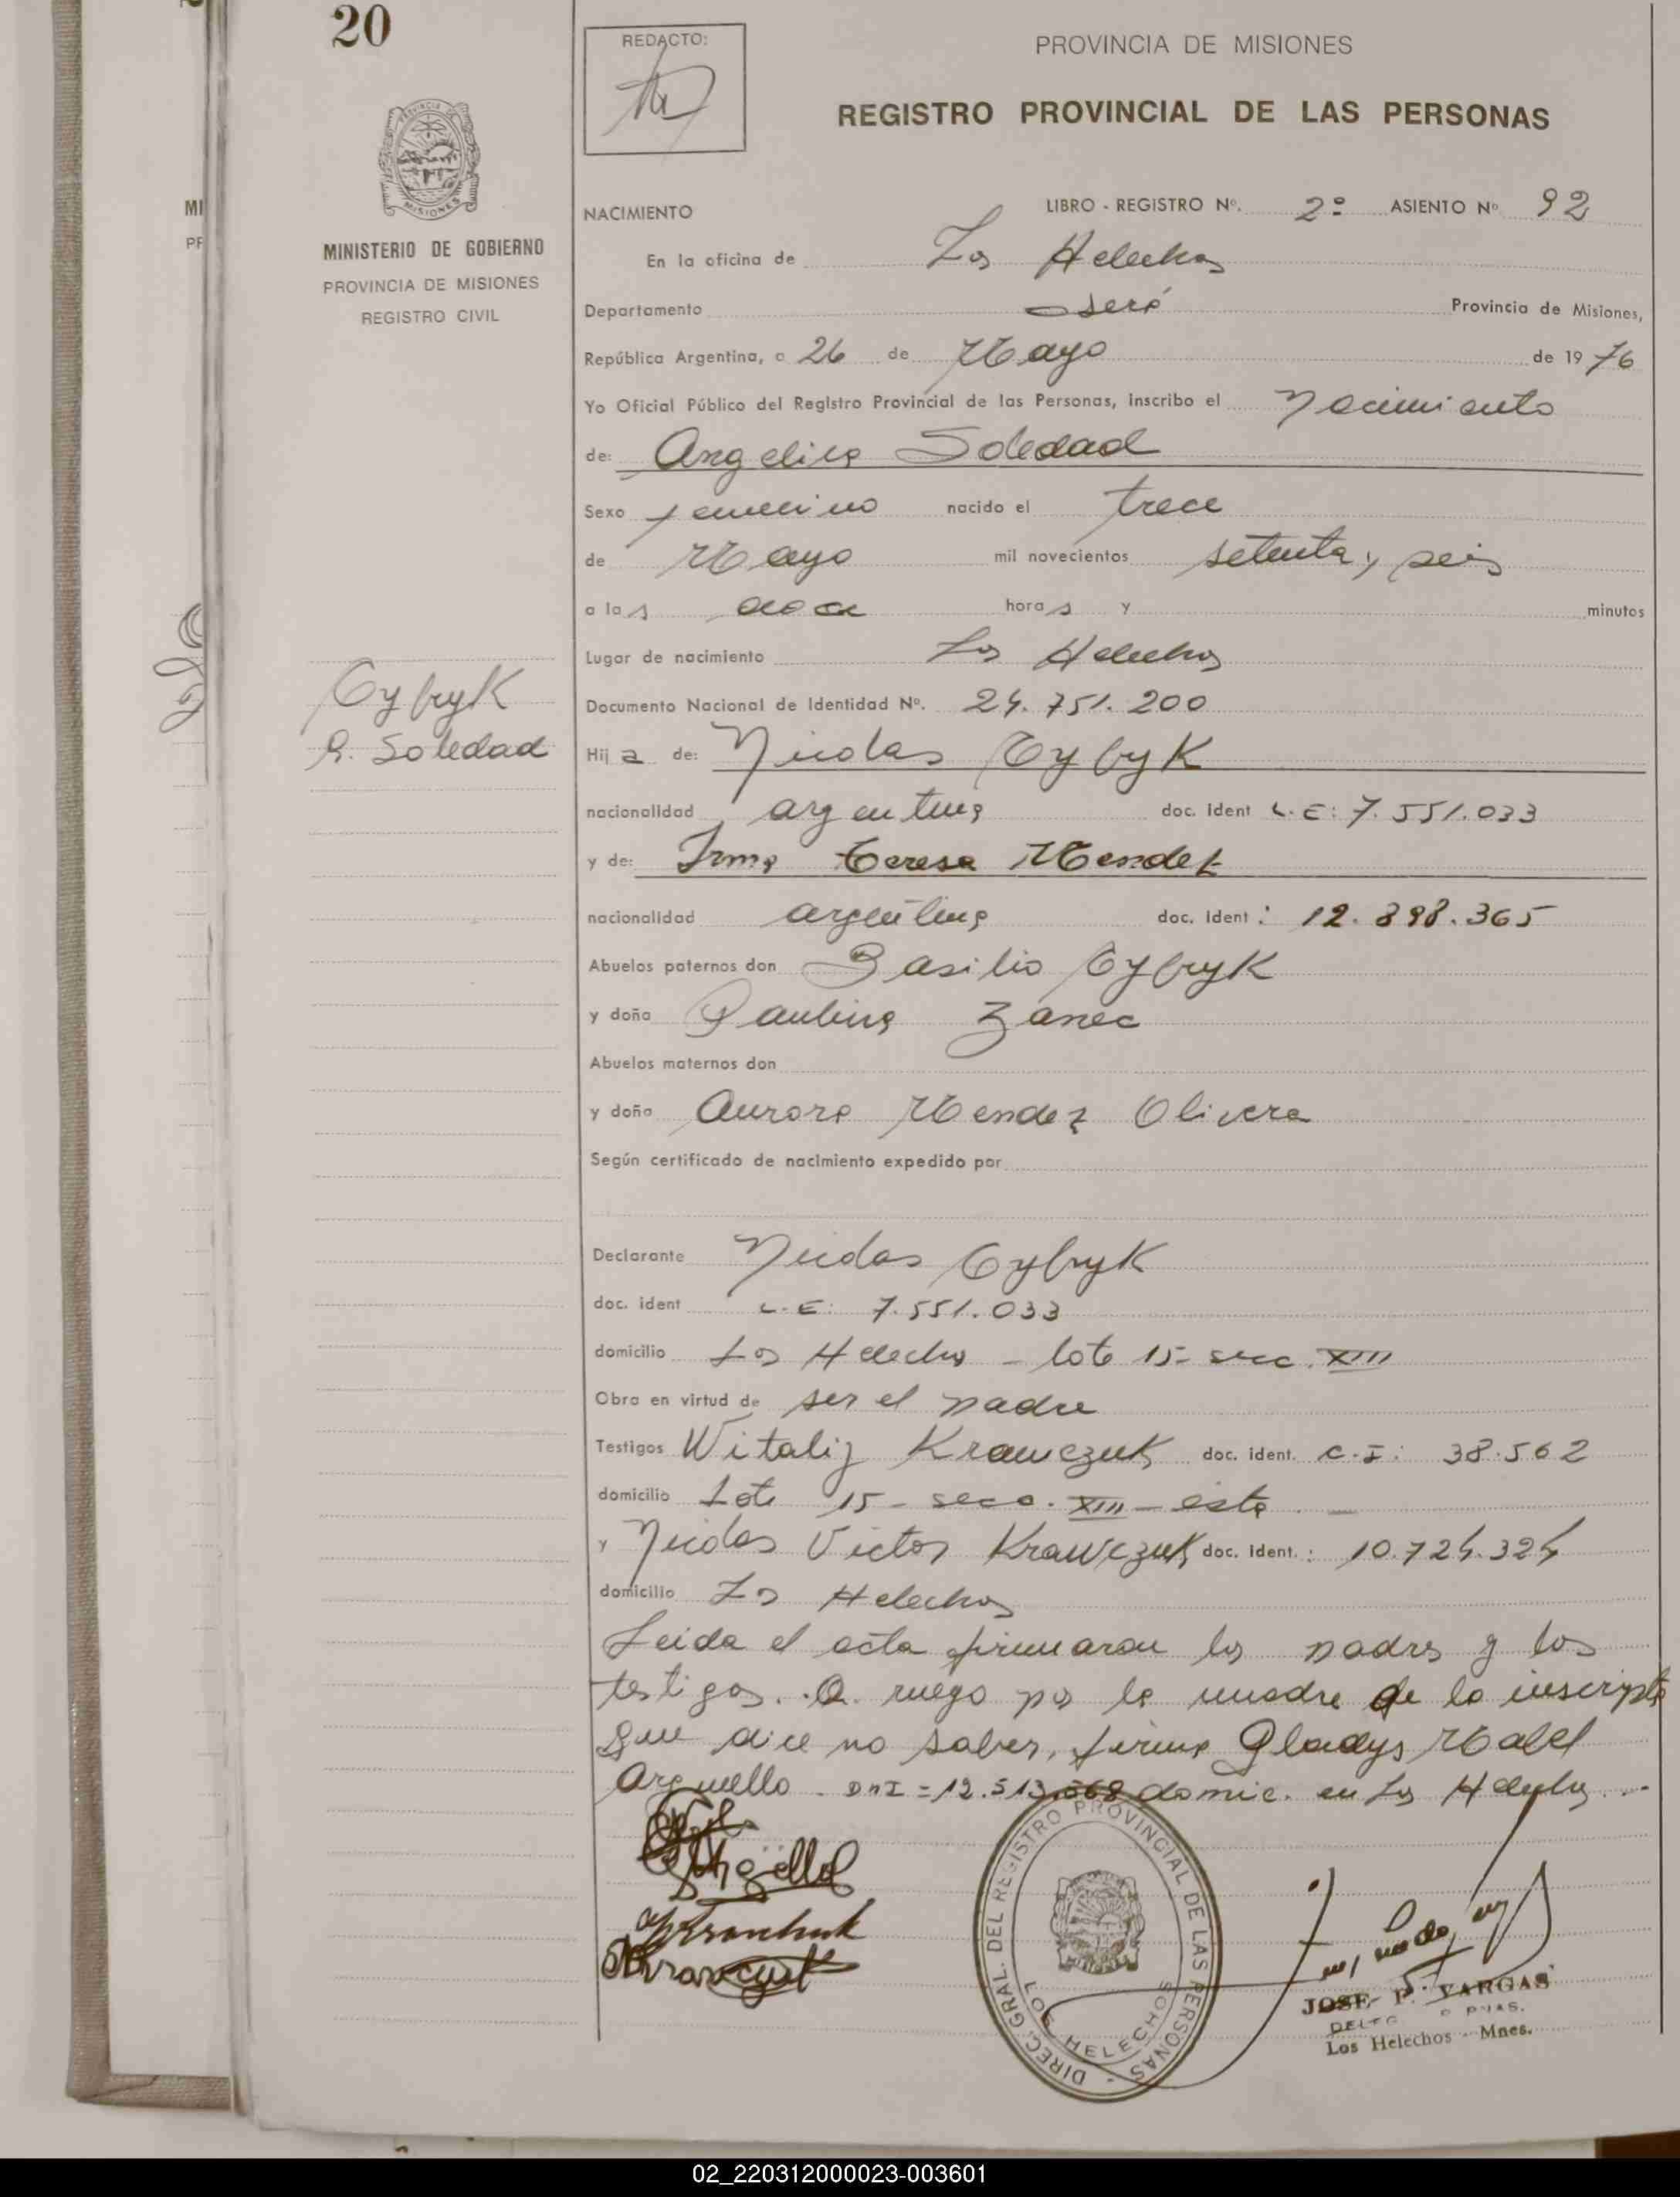 20
MINISTERIO DE GOBIERNO
PROVINCIA DE MISIONES
REGISTRO CIVIL
REDACTO:
PROVINCIA DE MISIONES
REGISTRO PROVINCIAL DE LAS PERSONAS
NACIMIENTO LIBRO - REGISTRO Nº. 2º ASIENTO Nº 92
En la oficina de Los Helechos
Departamento Provincia de Misiones,
República Argentina, a 26 de Mayo de 1976
Yo Oficial Público del Registro Provincial de las Personas, inscribo el Nacimiento
de: Angelica Soledad
Sexo femenino nacido el trece
de Mayo mil novecientos setenta y seis
a las doce horas y minutos
Lugar de nacimiento Los Helechos
Documento Nacional de Identidad Nº. 24.751.200
Cybryk
A. Soledad
Hija de: Nicolas Cybyk
nacionalidad argentina doc. ident L.E: 7.551.033
y de: Irma Teresa Mendez
nacionalidad argentina doc. ident: 12.898.365
Abuelos paternos don Basilio Cybryk
y doña Paulina Zanec
Abuelos maternos don
y doña Aurora Mendez Olivera
Según certificado de nacimiento expedido por
Declarante Nicolas Cybryk
doc. ident L.E: 7.551.033
domicilio Los Helechos - lote 15- secc. XIII
Obra en virtud de ser el padre
Testigos Witalij Krawczuk doc. ident. C.I: 38.562
domicilio Lote 15- secc. XIII- este
y Nicolas Victor Krawczuk doc. ident.: 10.724.324
domicilio Los Helechos
Leida el acta firmaron los padres y los
testigos. A ruego por la madre de la inscripta
que dice no saber, firma Gladys Mabel
Arguello. DNI = 12.513.568 domic. en Los Helechos.
DIREC. GRAL. DEL REGISTRO PROVINCIAL DE LAS PERSONAS
LOS HELECHOS
JOSE P. VARGAS
Los Helechos - Mnes.
02_220312000023-003601